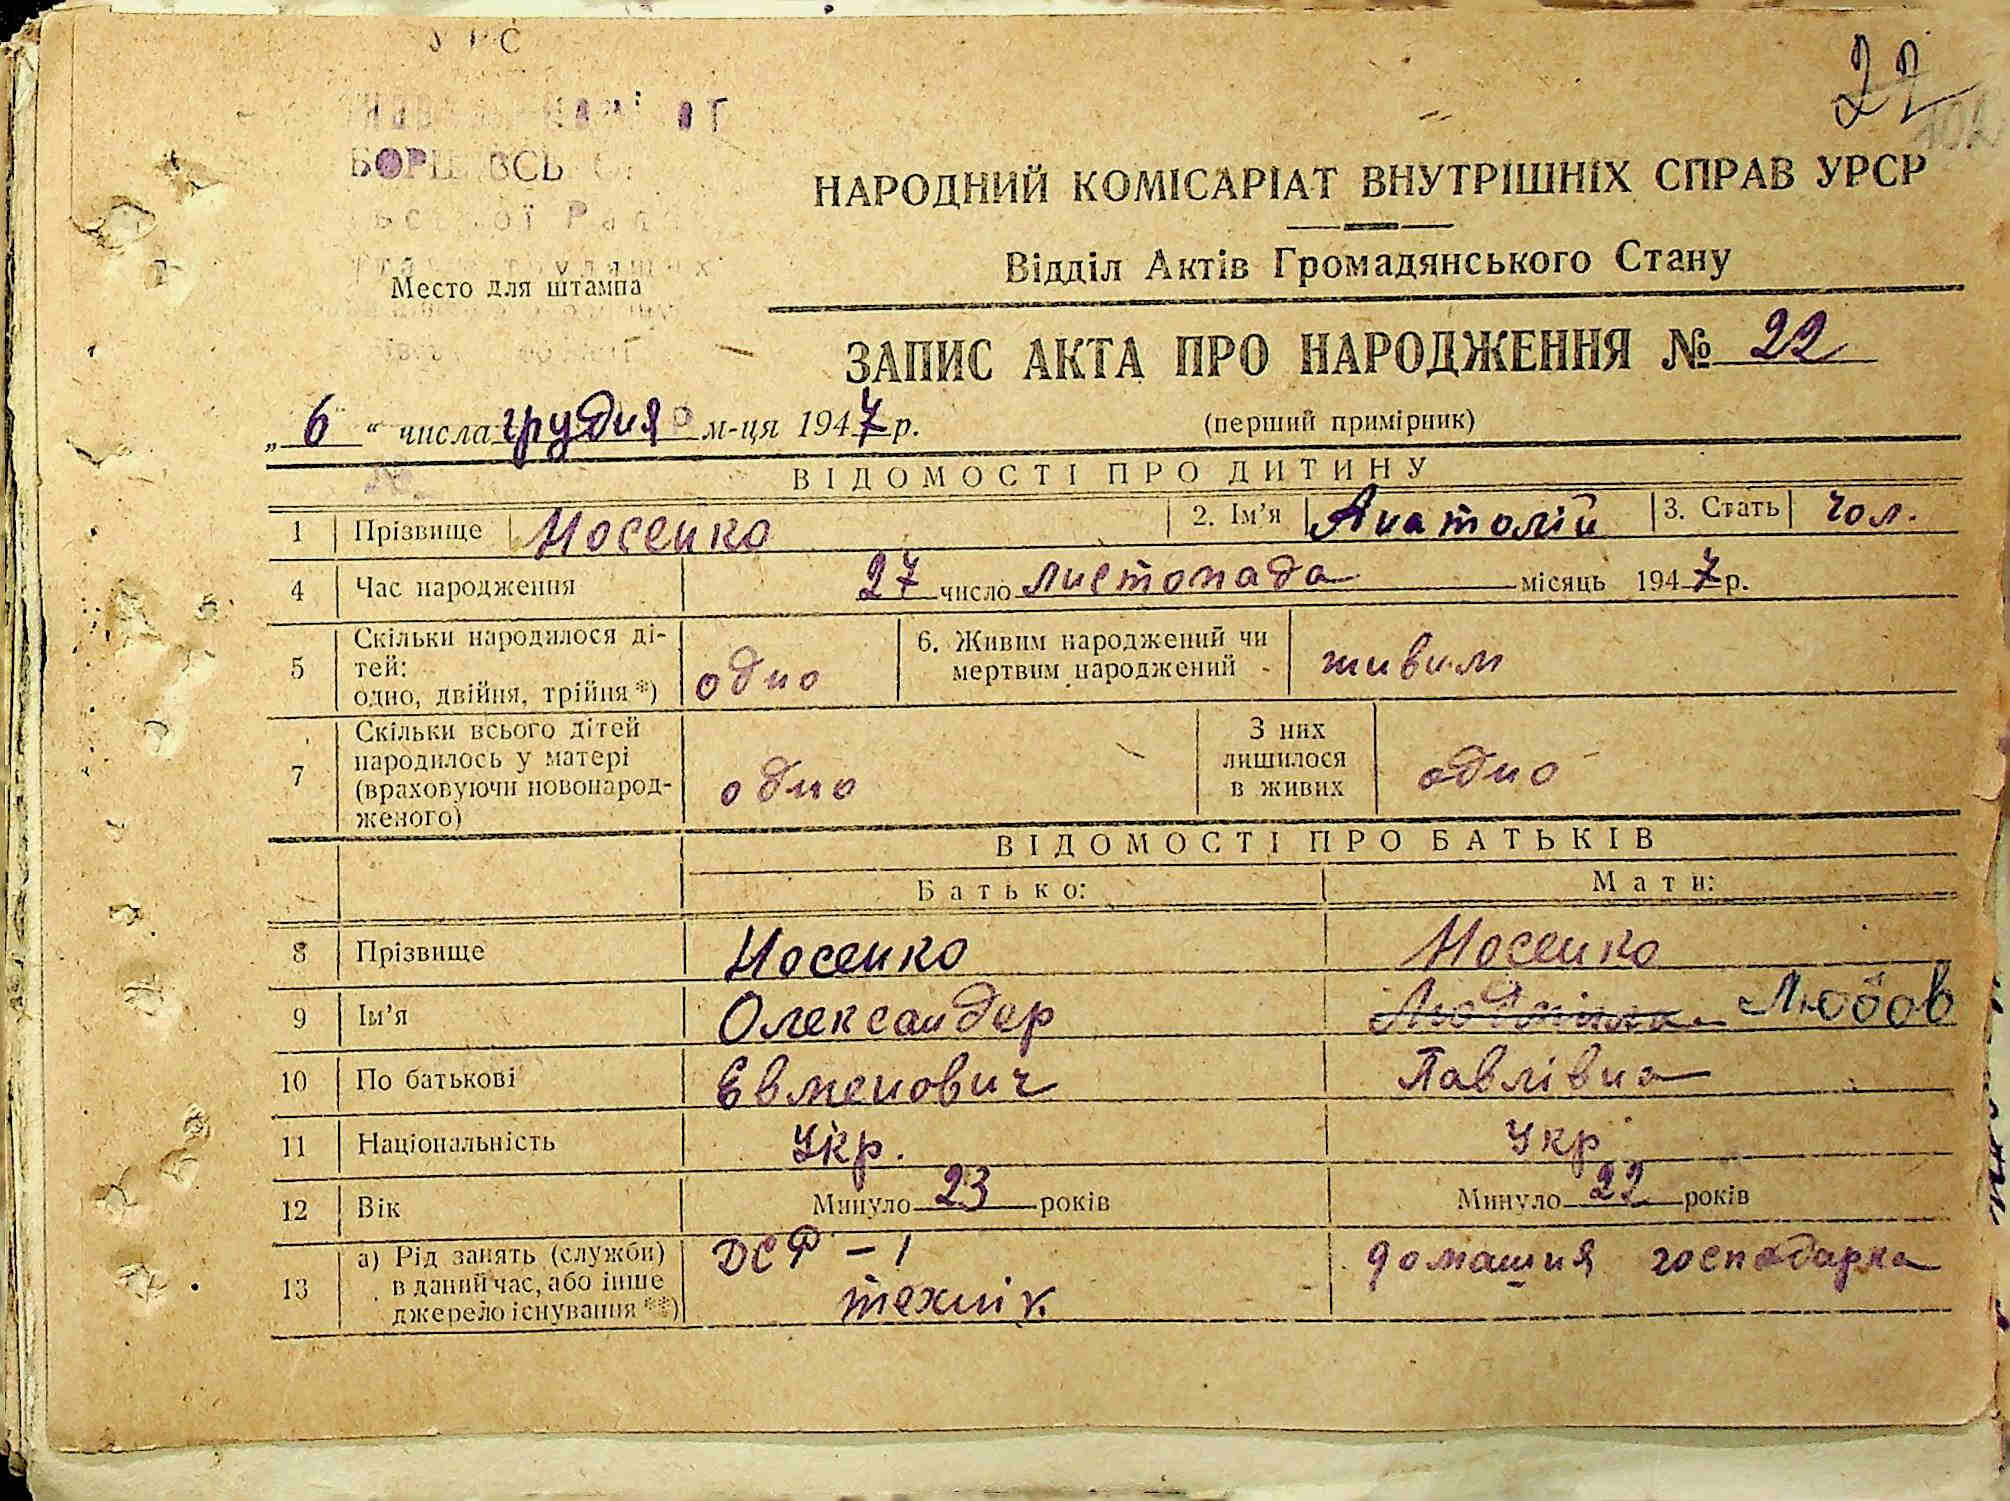 22
НАРОДНИЙ КОМІСАРІАТ ВНУТРІШНІХ СПРАВ УРСР
Відділ Актів Громадянського Стану
Место для штампа
ЗАПИС АКТА ПРО НАРОДЖЕННЯ № 22
„ 6 “ числа грудня м-ця 1947 р.
(перший примірник)
ВІДОМОСТІ ПРО ДИТИНУ
1 Прізвище Носенко 2. Ім’я Анатолій 3. Стать чол.
4 Час народження 27 число листопада місяць 1947 р.
5 Скільки народилося ді-
тей:
одно, двійня, трійня*) одно
6. Живим народжений чи
мертвим народжений живим
7 Скільки всього дітей
народилось у матері
(враховуючи новонарод-
женого) одно
З них
лишилося
в живих одно
ВІДОМОСТІ ПРО БАТЬКІВ
Батько: Мати:
8 Прізвище Носенко Носенко
9 Ім’я Олександер Людміла Любов
10 По батькові Евменович Павлівна
11 Національність Укр. Укр
12 Вік Минуло 23 років Минуло 22 років
13 а) Рід занять (служби)
в даний час, або інше
джерело існування**)
ДСФ – 1
технік.
домашня господарка